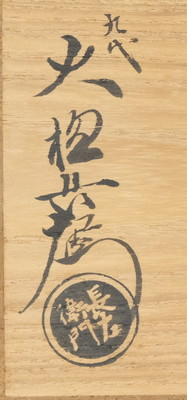 九代
大樋
長左衛門